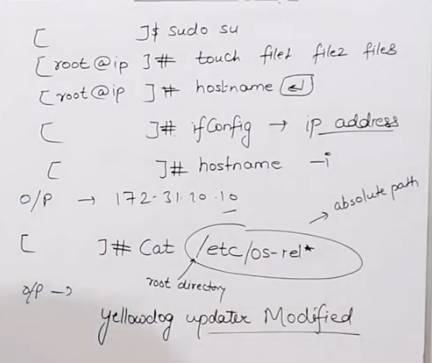 [ ]$ sudo su
[root@ip ]# touch file1 file2 file3
[root@ip ]# hostname ↵
[ ]# ifconfig → ip address
[ ]# hostname -i
O/P → 172.31.10.10
→ absolute path
[ ]# Cat /etc/os-rel*
root directory
O/P →
Yellowdog updater Modified